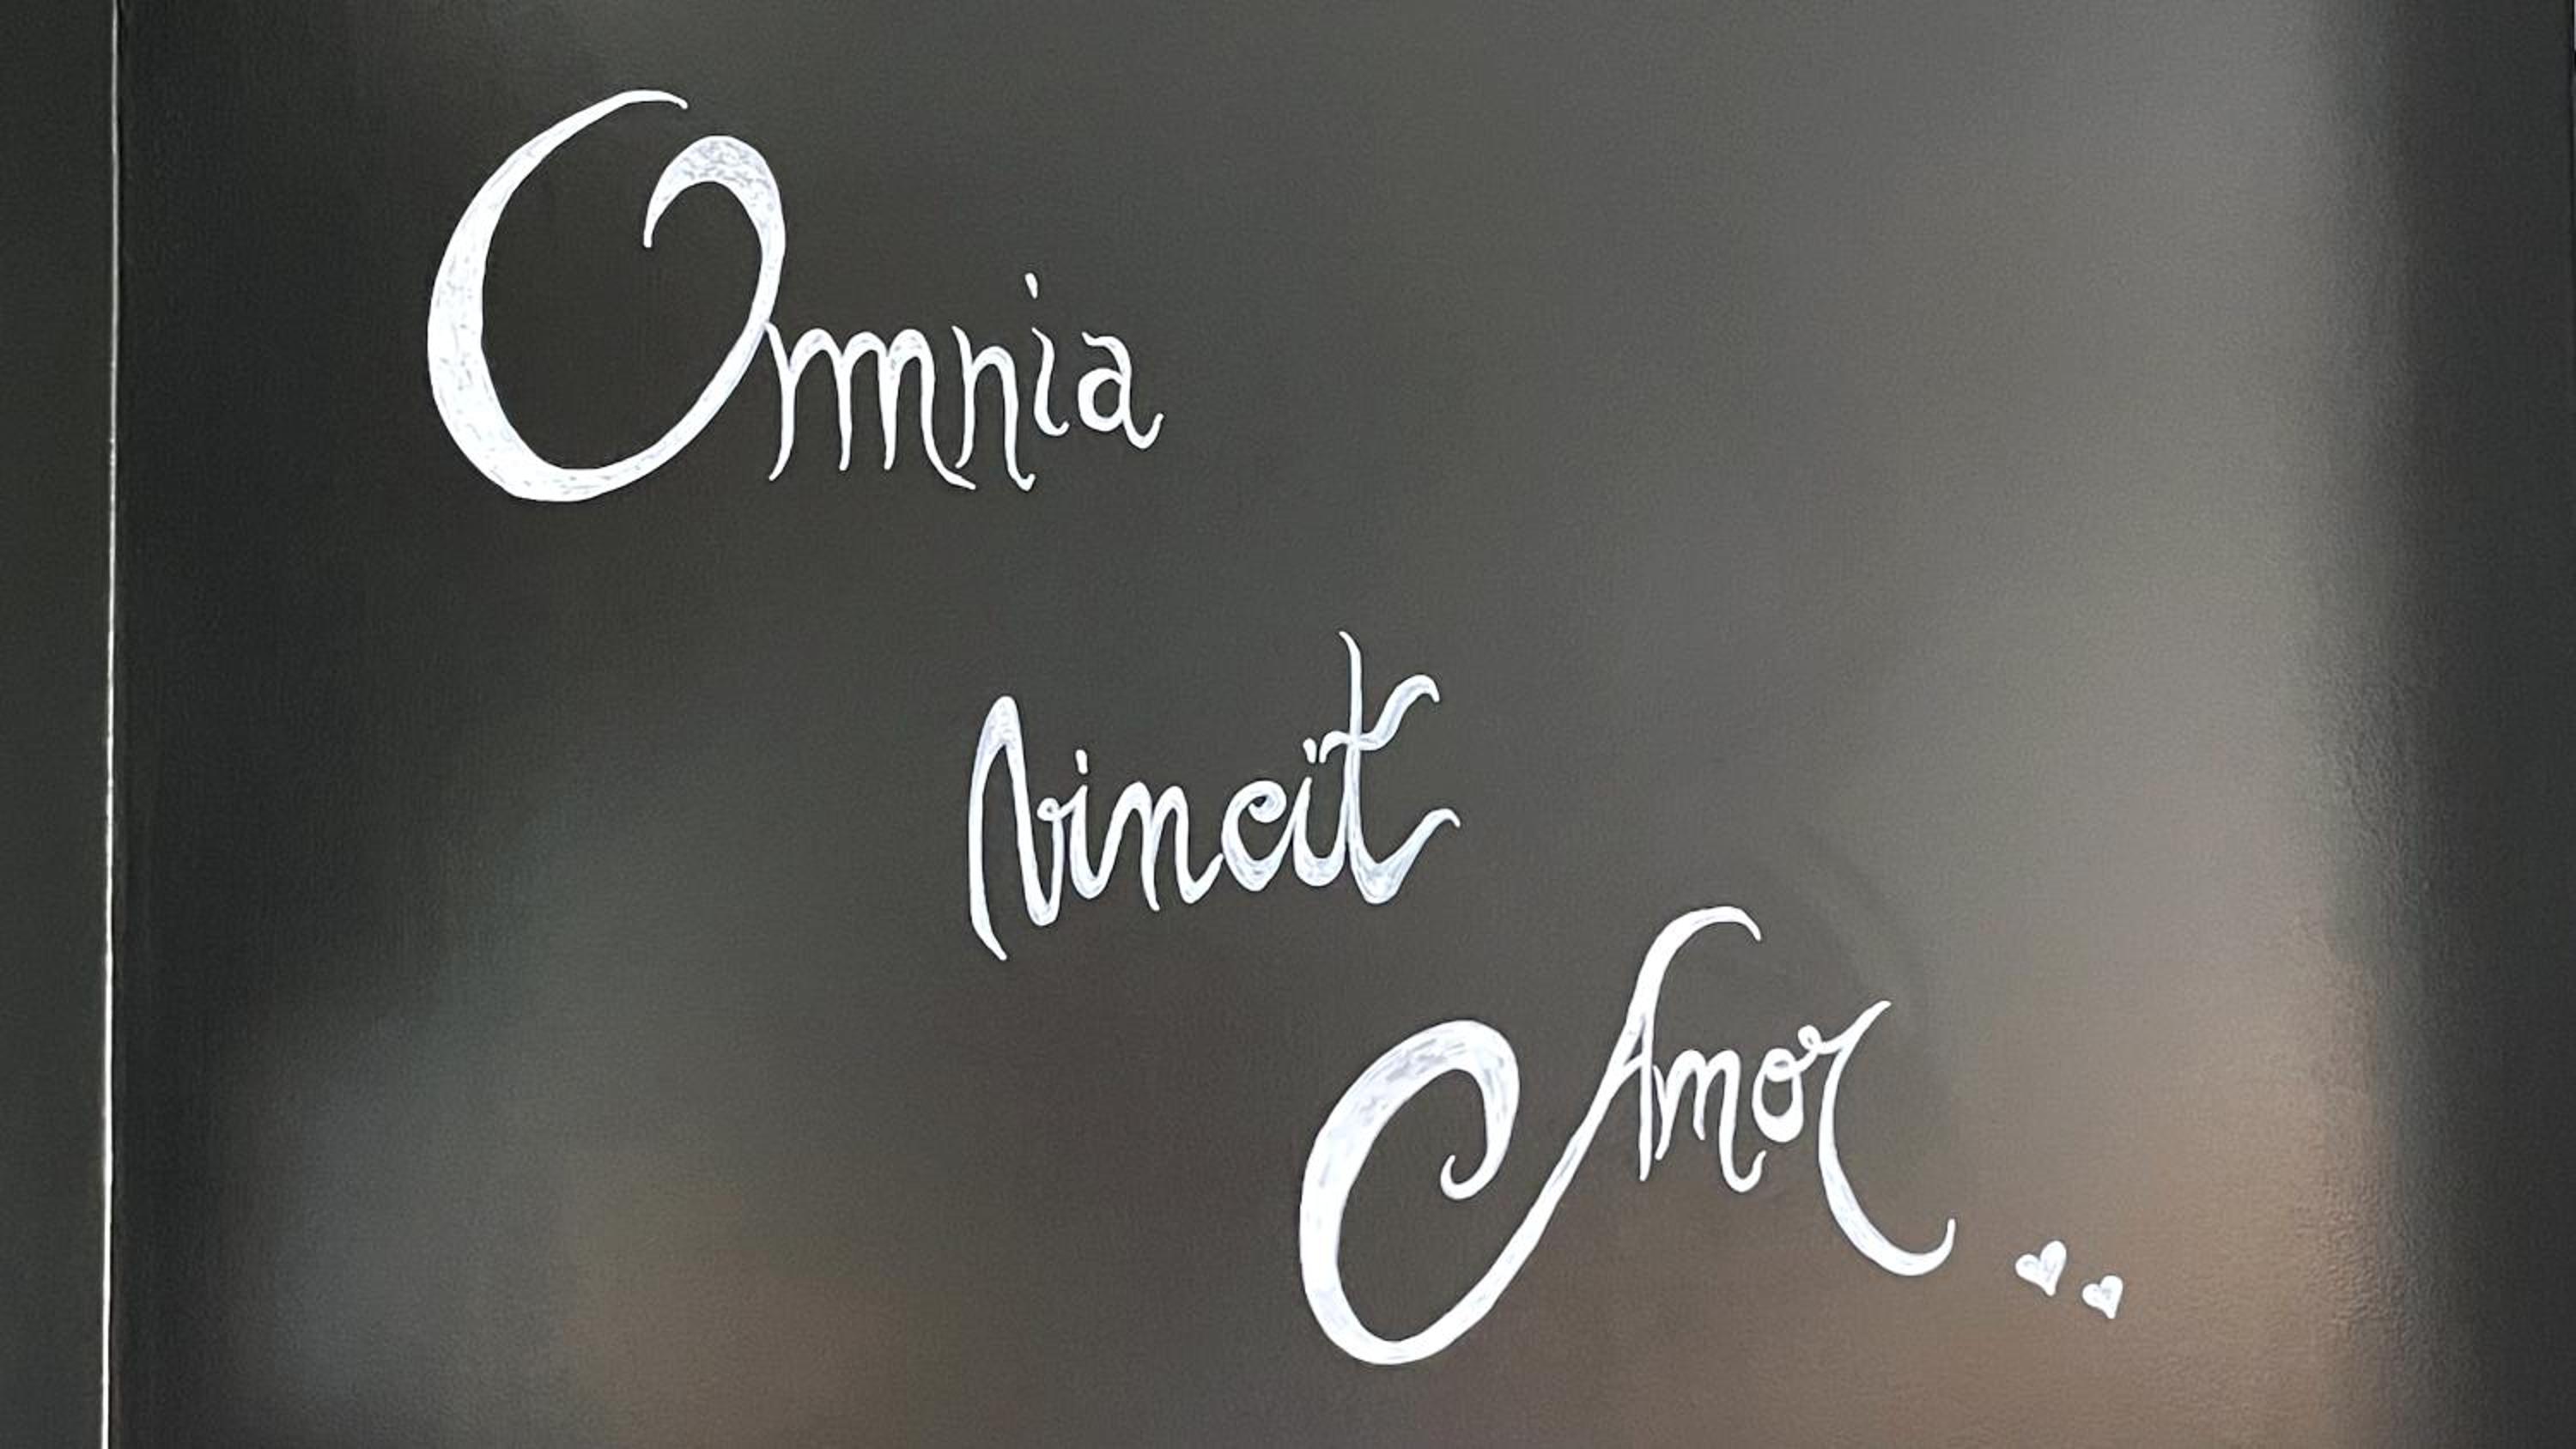 Omnia
Vincit
Amor